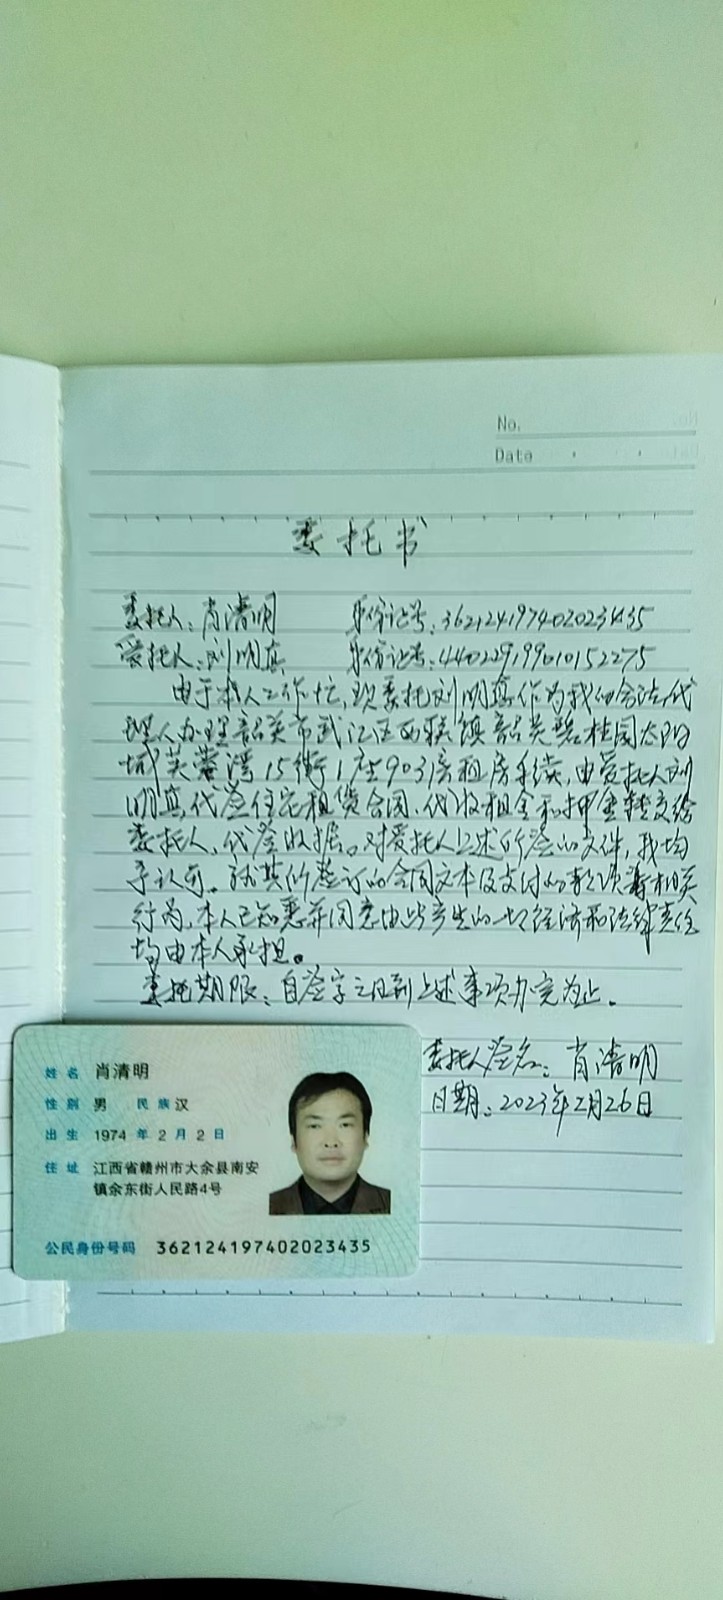 No.
Date
委托书
委托人：肖清明 身份证号：362124197402023435
受托人：刘明真 身份证号：440229199010152275
由于本人工作忙，现委托刘明真作为我的合法代
理人办理韶关市武江区西联镇韶关碧桂园太阳
城芙蓉湾15街1座903房租房手续，由受托人刘
明真代签住宅租赁合同、代收租金和押金转交给
委托人、代签收据。对受托人上述所签的文件，我均
予认可。就其所签订的合同文本及支付的款项等相关
行为，本人已知悉并同意由此产生的一切经济和法律责任
均由本人承担。
委托期限：自签字之日到上述事项办完为止。
委托人签名：肖清明
日期：2023年2月26日
姓名 肖清明
性别 男 民族 汉
出生 1974 年 2 月 2 日
住址 江西省赣州市大余县南安
镇余东街人民路4号
公民身份号码 362124197402023435